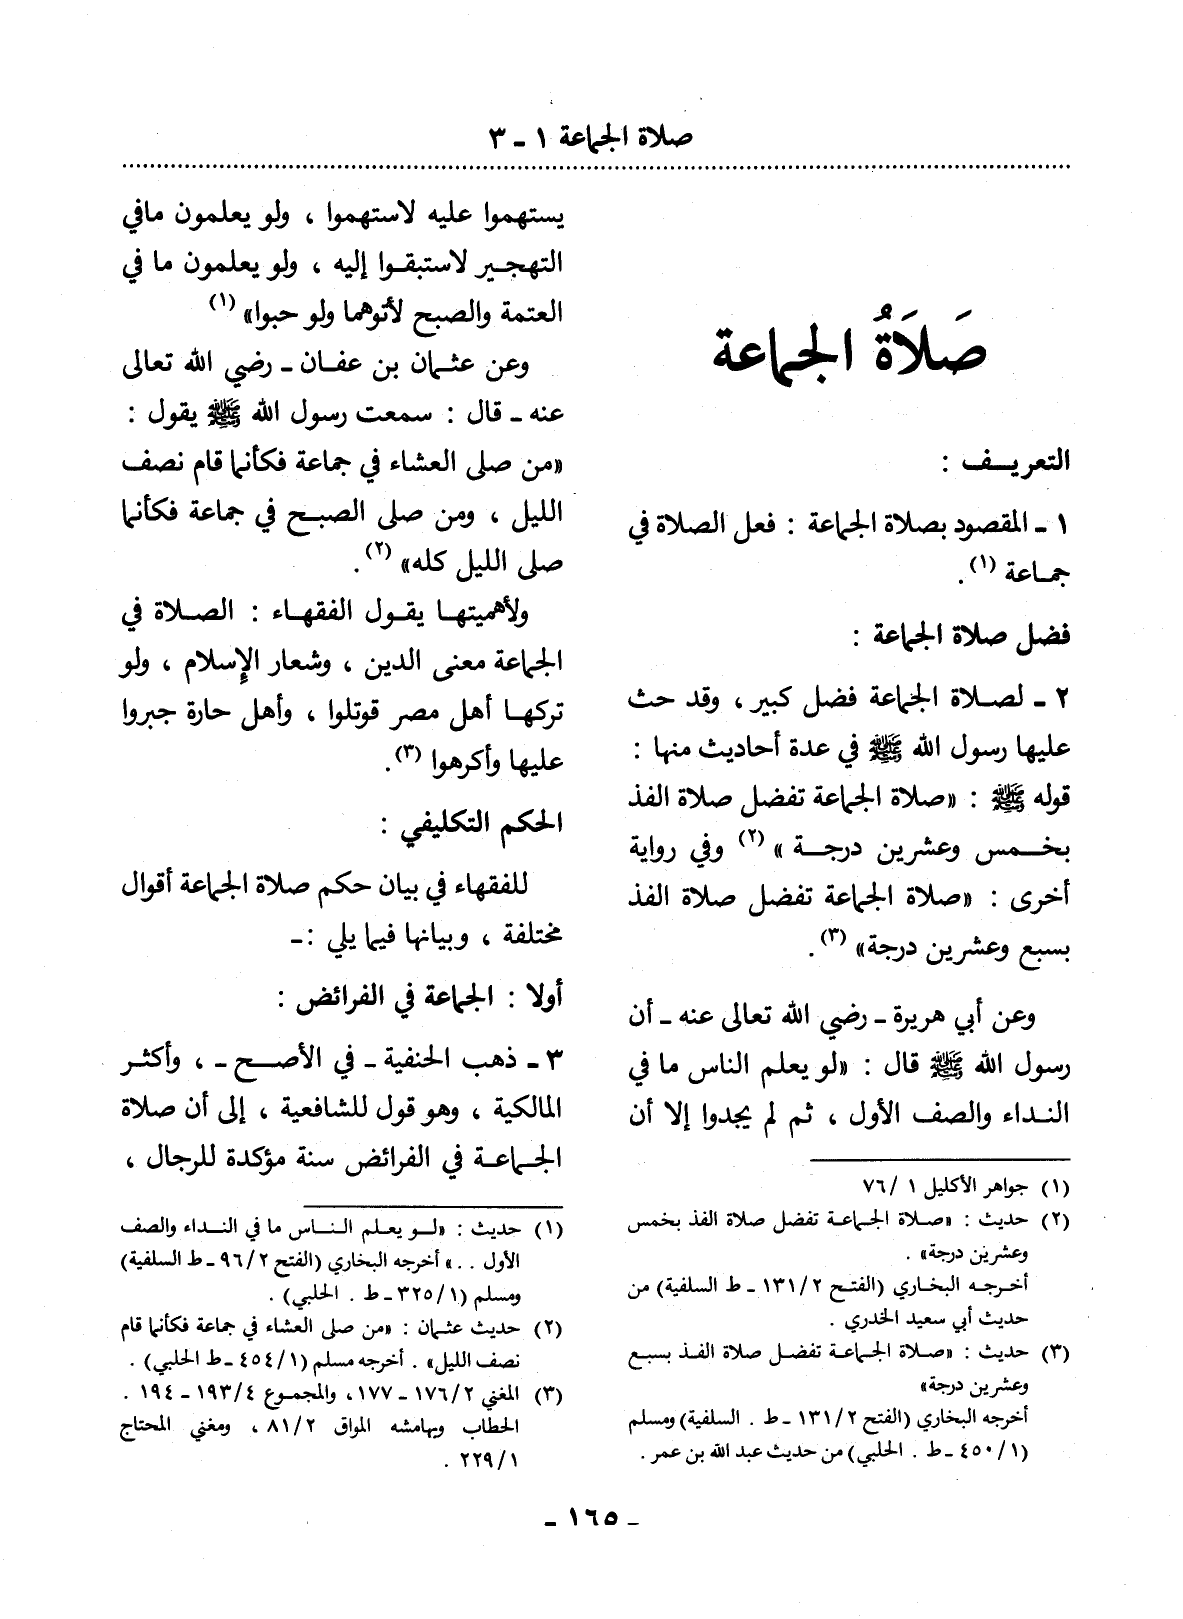 صلاة الجماعة ١ ـ ٣
صَلَاَةُ الجماعة
التعريـف :
١ ـ المقصود بصلاة الجماعة : فعل الصلاة في
جماعة (١).
فضل صلاة الجماعة :
٢ ـ لصلاة الجماعة فضل كبير ، وقد حث
عليها رسول الله ﷺ في عدة أحاديث منها :
قوله ﷺ : «صلاة الجماعة تفضل صلاة الفذ
بخمس وعشرين درجة » (٢) وفي رواية
أخرى : «صلاة الجماعة تفضل صلاة الفذ
بسبع وعشرين درجة» (٣) .
وعن أبي هريرة ـ رضي الله تعالى عنه ـ أن
رسول الله ﷺ قال : «لو يعلم الناس ما في
النداء والصف الأول ، ثم لم يجدوا إلا أن
(١) جواهر الأكليل ١ /٧٦
(٢) حديث : «صلاة الجماعة تفضل صلاة الفذ بخمس
وعشرين درجة» .
أخرجه البخاري (الفتح ٢/ ١٣١ ـ ط السلفية) من
حديث أبي سعيد الخدري .
(٣) حديث : «صلاة الجماعة تفضل صلاة الفذ بسبع
وعشرين درجة»
أخرجه البخاري (الفتح ٢/ ١٣١ ـ ط . السلفية) ومسلم
(١/ ٤٥٠ ـ ط . الحلبي) من حديث عبد الله بن عمر .
يستهموا عليه لاستهموا ، ولو يعلمون مافي
التهجير لاستبقوا إليه ، ولو يعلمون ما في
العتمة والصبح لأتوهما ولو حبوا» (١)
وعن عثمان بن عفان ـ رضي الله تعالى
عنه ـ قال : سمعت رسول الله ﷺ يقول :
«من صلى العشاء في جماعة فكأنما قام نصف
الليل ، ومن صلى الصبح في جماعة فكأنما
صلى الليل كله» (٢).
ولأهميتها يقول الفقهاء : الصلاة في
الجماعة معنى الدين ، وشعار الإسلام ، ولو
تركها أهل مصر قوتلوا ، وأهل حارة جبروا
عليها وأكرهوا (٣).
الحكم التكليفي :
للفقهاء في بيان حكم صلاة الجماعة أقوال
مختلفة ، وبيانها فيما يلي :ـ
أولا : الجماعة في الفرائض :
٣ ـ ذهب الحنفية ـ في الأصح ـ ، وأكثر
المالكية ، وهو قول للشافعية ، إلى أن صلاة
الجماعة في الفرائض سنة مؤكدة للرجال ،
(١) حديث : «لو يعلم الناس ما في النداء والصف
الأول . .» أخرجه البخاري (الفتح ٢/ ٩٦ ـ ط السلفية)
ومسلم (١/ ٣٢٥ ـ ط . الحلبي) .
(٢) حديث عثمان : «من صلى العشاء في جماعة فكأنما قام
نصف الليل» . أخرجه مسلم (١/ ٤٥٤ ـ ط الحلبي) .
(٣) المغني ٢/ ١٧٦ ـ ١٧٧، والمجموع ٤/ ١٩٣ ـ ١٩٤ .
الحطاب وبهامشه المواق ٢/ ٨١ ، ومغني المحتاج
١/ ٢٢٩ .
ـ ١٦٥ ـ